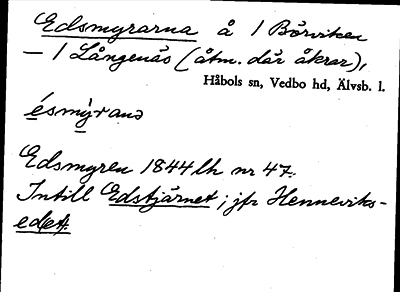 Edsmyrarna å 1 Börviken
— 1 Långenäs (åtm. där åkrar),
Håbols sn, Vedbo hd, Älvsb. l.
ésmỳranə
Edsmyren 1844 lh nr 47.
Intill Edstjärnet; jfr Henneviks-
edet.